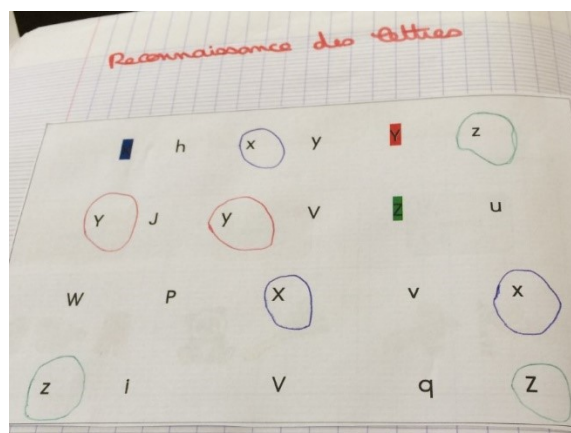 Reconnaissance des lettres
h x y Y z
Y J y V Z u
W P X v x
z i V q Z